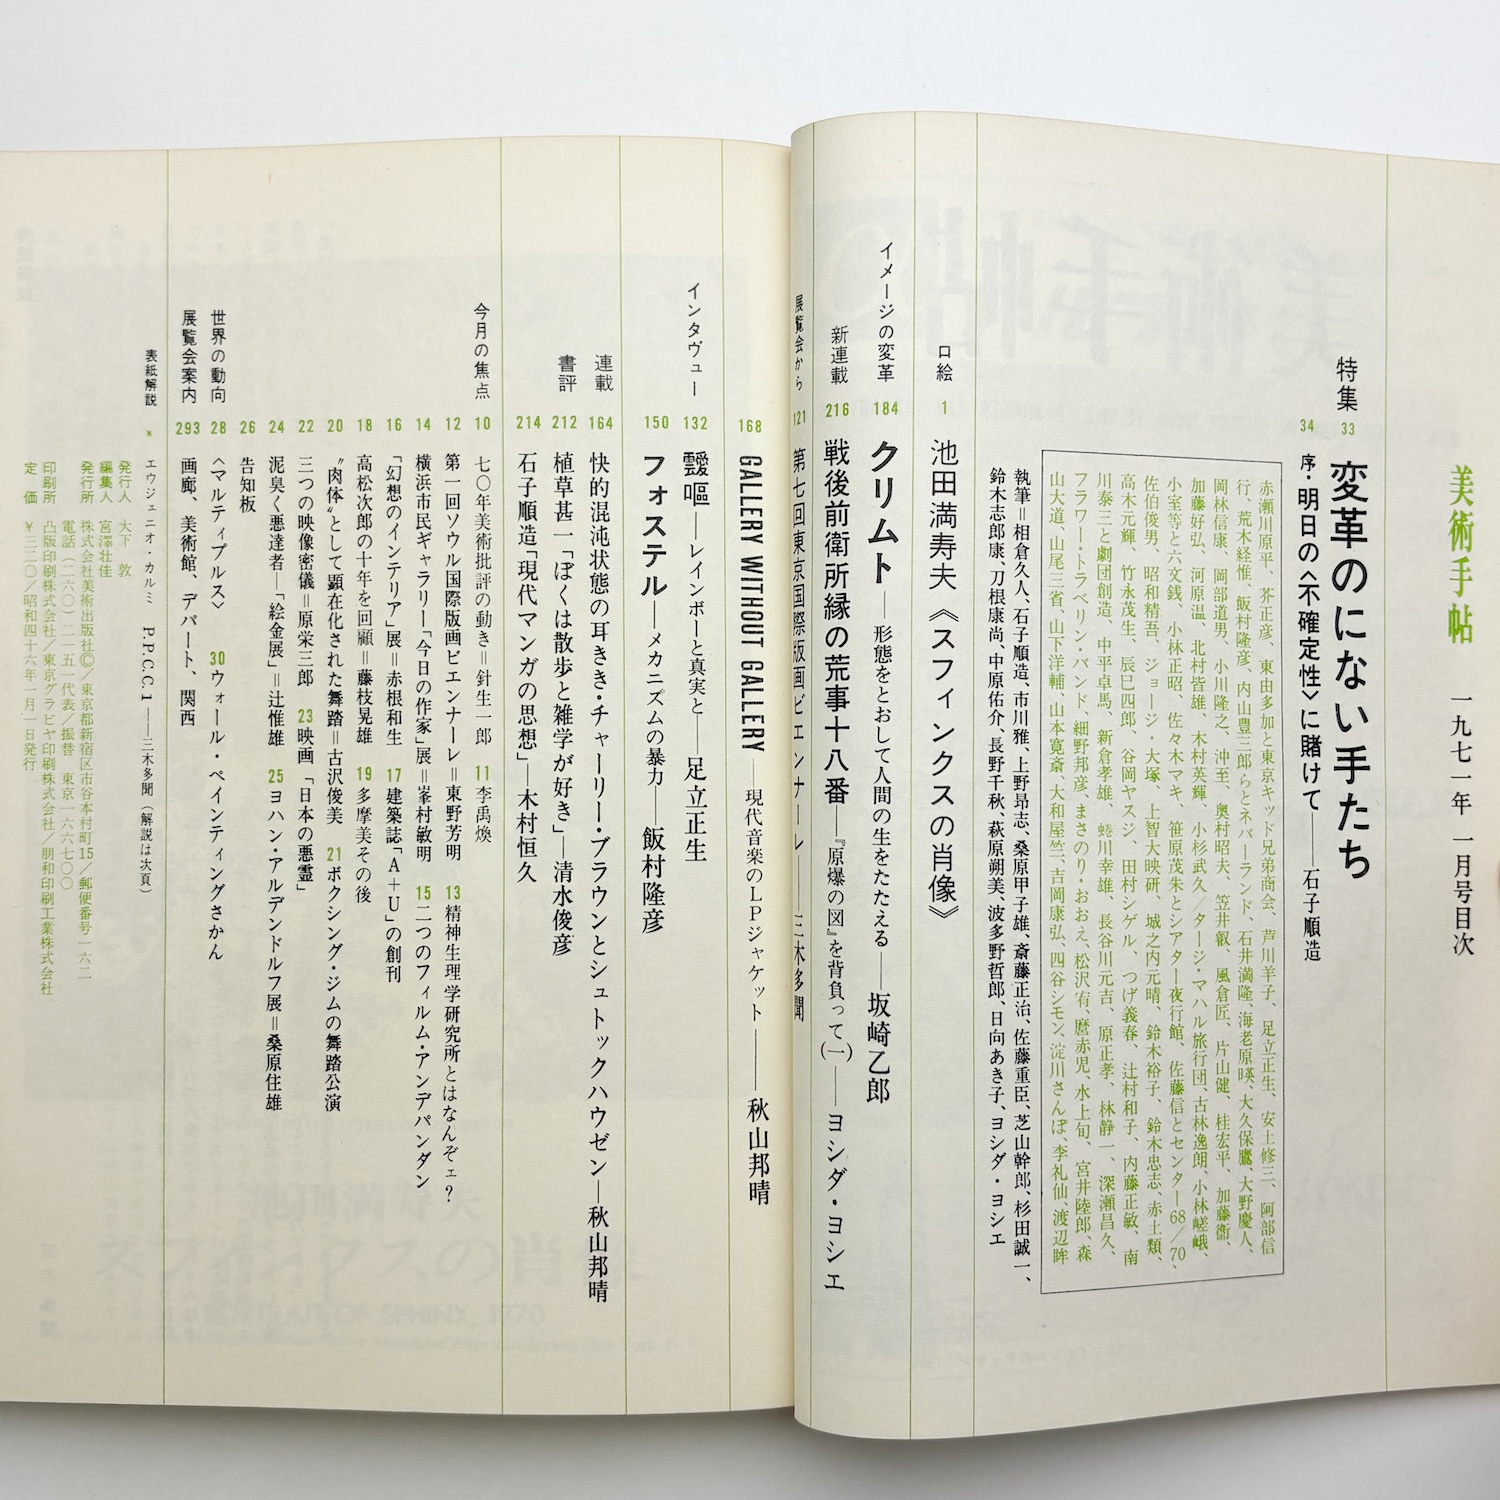 美術手帖 一九七一年 一月号目次
特集
33 変革のにない手たち
34 序・明日の〈不確定性〉に賭けて――石子順造
赤瀬川原平、芥正彦、東由多加と東京キッド兄弟商会、芦川羊子、足立正生、安土修三、阿部信
行、荒木経惟、飯村隆彦、内山豊三郎らとネバーランド、石井満隆、海老原暎、大久保鷹、大野慶人、
岡林信康、岡部道男、小川隆之、沖至、奥村昭夫、笠井叡、風倉匠、片山健、桂宏平、加藤衛、
加藤好弘、河原温、北村皆雄、木村英輝、小杉武久／タージ・マハル旅行団、古林逸朗、小林嵯峨、
小室等と六文銭、小林正昭、佐々木マキ、笹原茂朱とシアター夜行館、佐藤信とセンター68／70、
佐伯俊男、昭和精吾、ジョージ・大塚、上智大映研、城之内元晴、鈴木裕子、鈴木忠志、赤土類、
高木元輝、竹永茂生、辰巳四郎、谷岡ヤスジ、田村シゲル、つげ義春、辻村和子、内藤正敏、南
川泰三と劇団創造、中平卓馬、新倉孝雄、蜷川幸雄、長谷川元吉、原正孝、林静一、深瀬昌久、
フラワー・トラベリン・バンド、細野邦彦、まさのり・おおえ、松沢宥、麿赤児、水上旬、宮井陸郎、森
山大道、山尾三省、山下洋輔、山本寛斎、大和屋竺、吉岡康弘、四谷シモン、淀川さんぽ、李礼仙、渡辺眸
執筆＝相倉久人、石子順造、市川雅、上野昂志、桑原甲子雄、斎藤正治、佐藤重臣、芝山幹郎、杉田誠一、
鈴木志郎康、刀根康尚、中原佑介、長野千秋、萩原朔美、波多野哲郎、日向あき子、ヨシダ・ヨシエ
口絵
1 池田満寿夫《スフィンクスの肖像》
イメージの変革
184 クリムト――形態をとおして人間の生をたたえる――坂崎乙郎
新連載
216 戦後前衛所縁の荒事十八番――『原爆の図』を背負って(一)――ヨシダ・ヨシエ
展覧会から
121 第七回東京国際版画ビエンナーレ――三木多聞
168 GALLERY WITHOUT GALLERY――現代音楽のLPジャケット――秋山邦晴
インタヴュー
132 靉嘔――レインボーと真実と――足立正生
150 フォステル――メカニズムの暴力――飯村隆彦
連載
164 快的混沌状態の耳きき・チャーリー・ブラウンとシュトックハウゼン――秋山邦晴
書評
212 植草甚一「ぼくは散歩と雑学が好き」――清水俊彦
214 石子順造「現代マンガの思想」――木村恒久
今月の焦点
10 七〇年美術批評の動き＝針生一郎 11 李禹煥
12 第一回ソウル国際版画ビエンナーレ＝東野芳明 13 精神生理学研究所とはなんぞェ?
14 横浜市民ギャラリー「今日の作家」展＝峯村敏明 15 二つのフィルム・アンデパンダン
16 「幻想のインテリア」展＝赤根和生 17 建築誌「A＋U」の創刊
18 高松次郎の十年を回顧＝藤枝晃雄 19 多摩美その後
20 〝肉体〟として顕在化された舞踏＝古沢俊美 21 ボクシング・ジムの舞踏公演
22 三つの映像密儀＝原栄三郎 23 映画「日本の悪霊」
24 泥臭く悪達者―「絵金展」＝辻惟雄 25 ヨハン・アルデンドルフ展＝桑原住雄
26 告知板
世界の動向
28 〈マルティプルス〉 30 ウォール・ペインティングさかん
展覧会案内
293 画廊、美術館、デパート、関西
表紙解説 * エウジェニオ・カルミ P.P.C.C.1――三木多聞（解説は次頁）
発行人 大下 敦
編集人 宮澤壮佳
発行所 株式会社美術出版社©／東京都新宿区市谷本村町15／郵便番号一六二
電話（二六〇）二一五一代表／振替 東京一六六七〇〇
印刷所 凸版印刷株式会社／東京グラビヤ印刷株式会社／朋和印刷工業株式会社
定 価 ￥三二〇／昭和四十六年一月一日発行